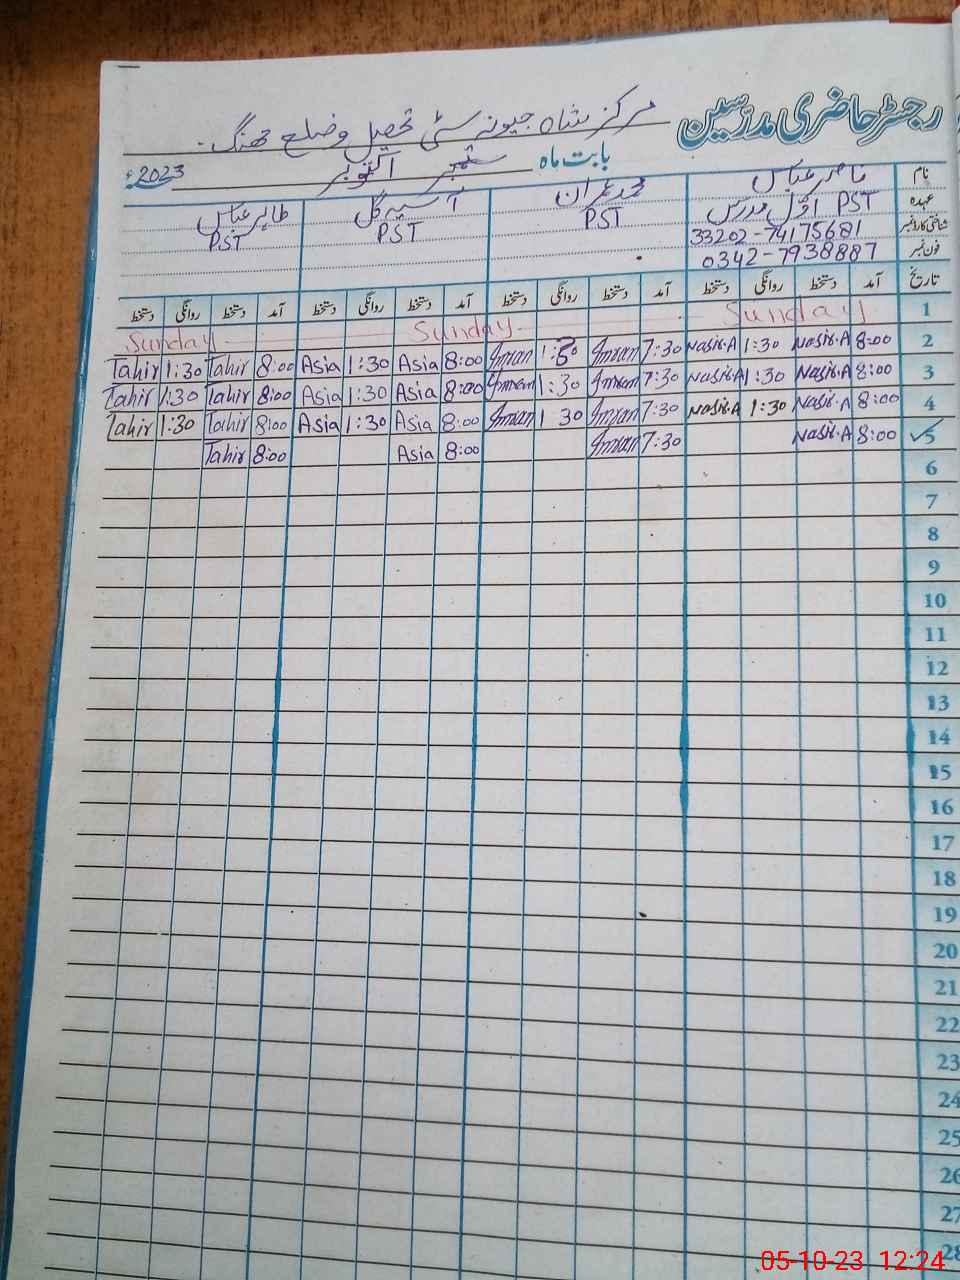 رجسٹر حاضری مدرسین
مرکز شاہ جیونہ سٹی تحصیل وضلع جھنگ۔
بابت ماہ ستمبر اکتوبر 2023ء
نام ناصر عباس محمد عمران آسیہ گل طاہر عباس
عہدہ PST اوّل مدرس PST PST PST
شناختی کارڈ نمبر 33202-74175681
فون نمبر 0342-7938887
تاریخ آمد دستخط روانگی دستخط آمد دستخط روانگی دستخط آمد دستخط روانگی دستخط آمد دستخط روانگی دستخط
1 Sunday Sunday Sunday
2 8:00 Nasir.A 1:30 Nasir.A 7:30 Imran 1:30 Imran 8:00 Asia 1:30 Asia 8:00 Tahir 1:30 Tahir
3 8:00 Nasir.A 1:30 Nasir.A 7:30 Imran 1:30 Imran 8:00 Asia 1:30 Asia 8:00 Tahir 1:30 Tahir
4 8:00 Nasir.A 1:30 Nasir.A 7:30 Imran 1 30 Imran 8:00 Asia 1:30 Asia 8:00 Tahir 1:30 Tahir
5 8:00 Nasir.A 7:30 Imran 8:00 Asia 8:00 Tahir
6
7
8
9
10
11
12
13
14
15
16
17
18
19
20
21
22
23
24
25
26
27
28
05-10-23 12:24